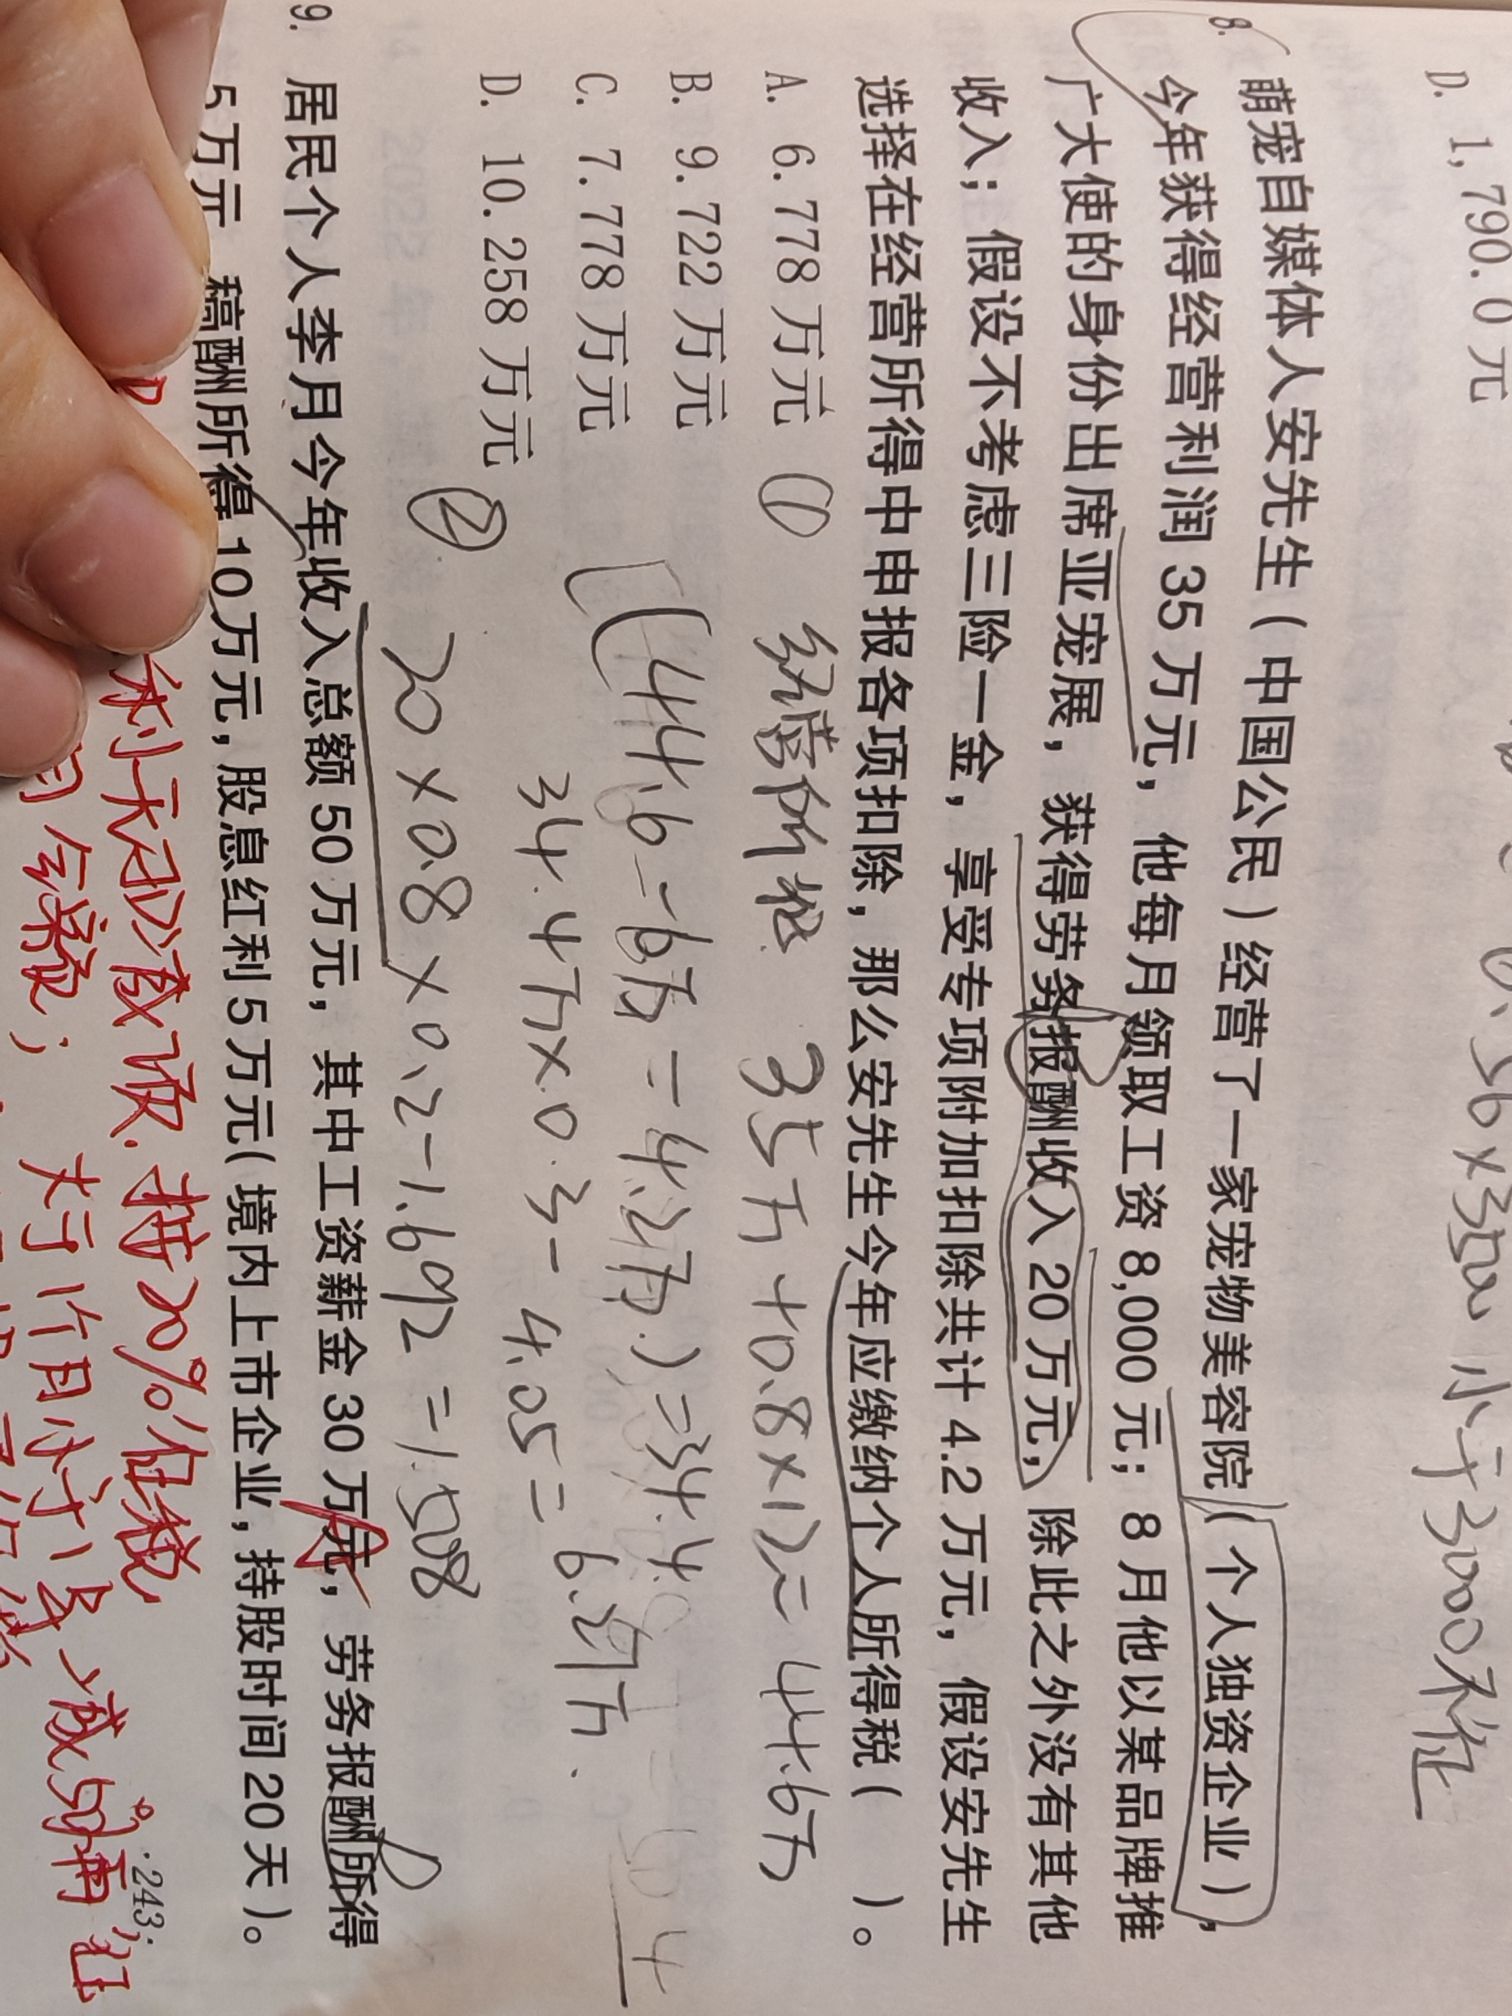 D. 1,790.0元
小于3000不征
8. 萌宠自媒体人安先生（中国公民）经营了一家宠物美容院（个人独资企业），
今年获得经营利润 35 万元，他每月领取工资 8,000 元；8 月他以某品牌推
广大使的身份出席亚宠展，获得劳务报酬收入 20 万元，除此之外没有其他
收入；假设不考虑三险一金，享受专项附加扣除共计 4.2 万元，假设安先生
选择在经营所得中申报各项扣除，那么安先生今年应缴纳个人所得税（ ）。
A. 6.778 万元
① 经营所得 35万+0.8×12=44.6万
B. 9.722 万元
(44.6-6万-4.2万)=34.4
C. 7.778 万元
34.4万×0.3-4.05=6.27万.
D. 10.258 万元
② 20×0.8×0.2-1.692=1.508
9. 居民个人李月今年收入总额 50 万元，其中工资薪金 30 万元，劳务报酬所得
5 万元 稿酬所得 10 万元，股息红利 5 万元（境内上市企业，持股时间 20 天）。
.243.